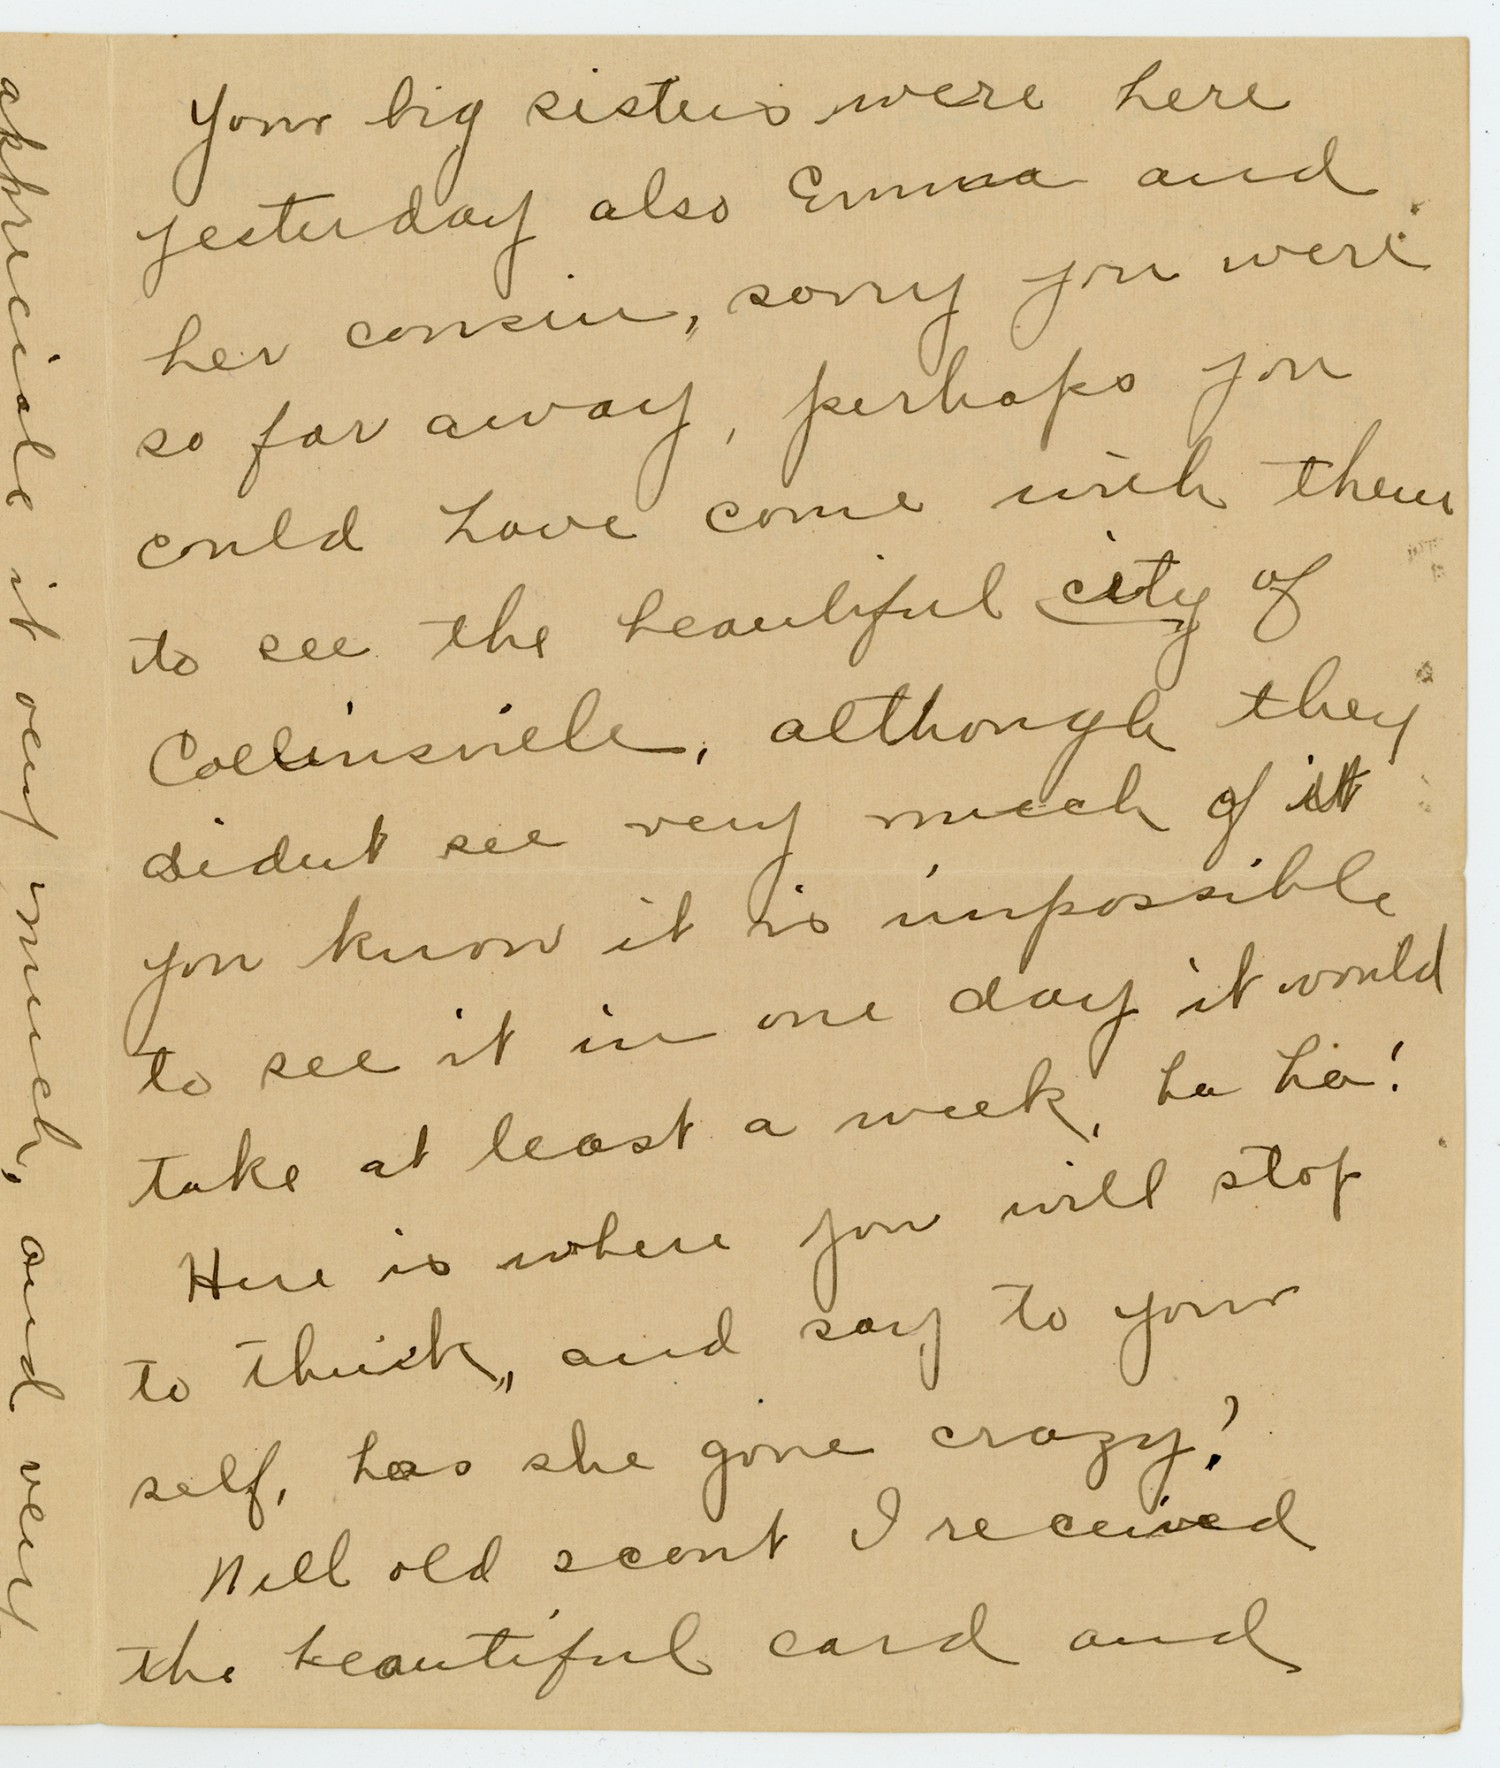 Your big sisters were here
yesterday also Emma and
her cousin, sorry you were
so far away, perhaps you
could have come with them
to see the beautiful city of
Collinsville, although they
didnt see very much of it
you know it is impossible
to see it in one day it would
take at least a week, ha ha!
Here is where you will stop
to think, and say to your
self, has she gone crazy?
Well old scout I received
the beautiful card and
appreciate it very much, and very